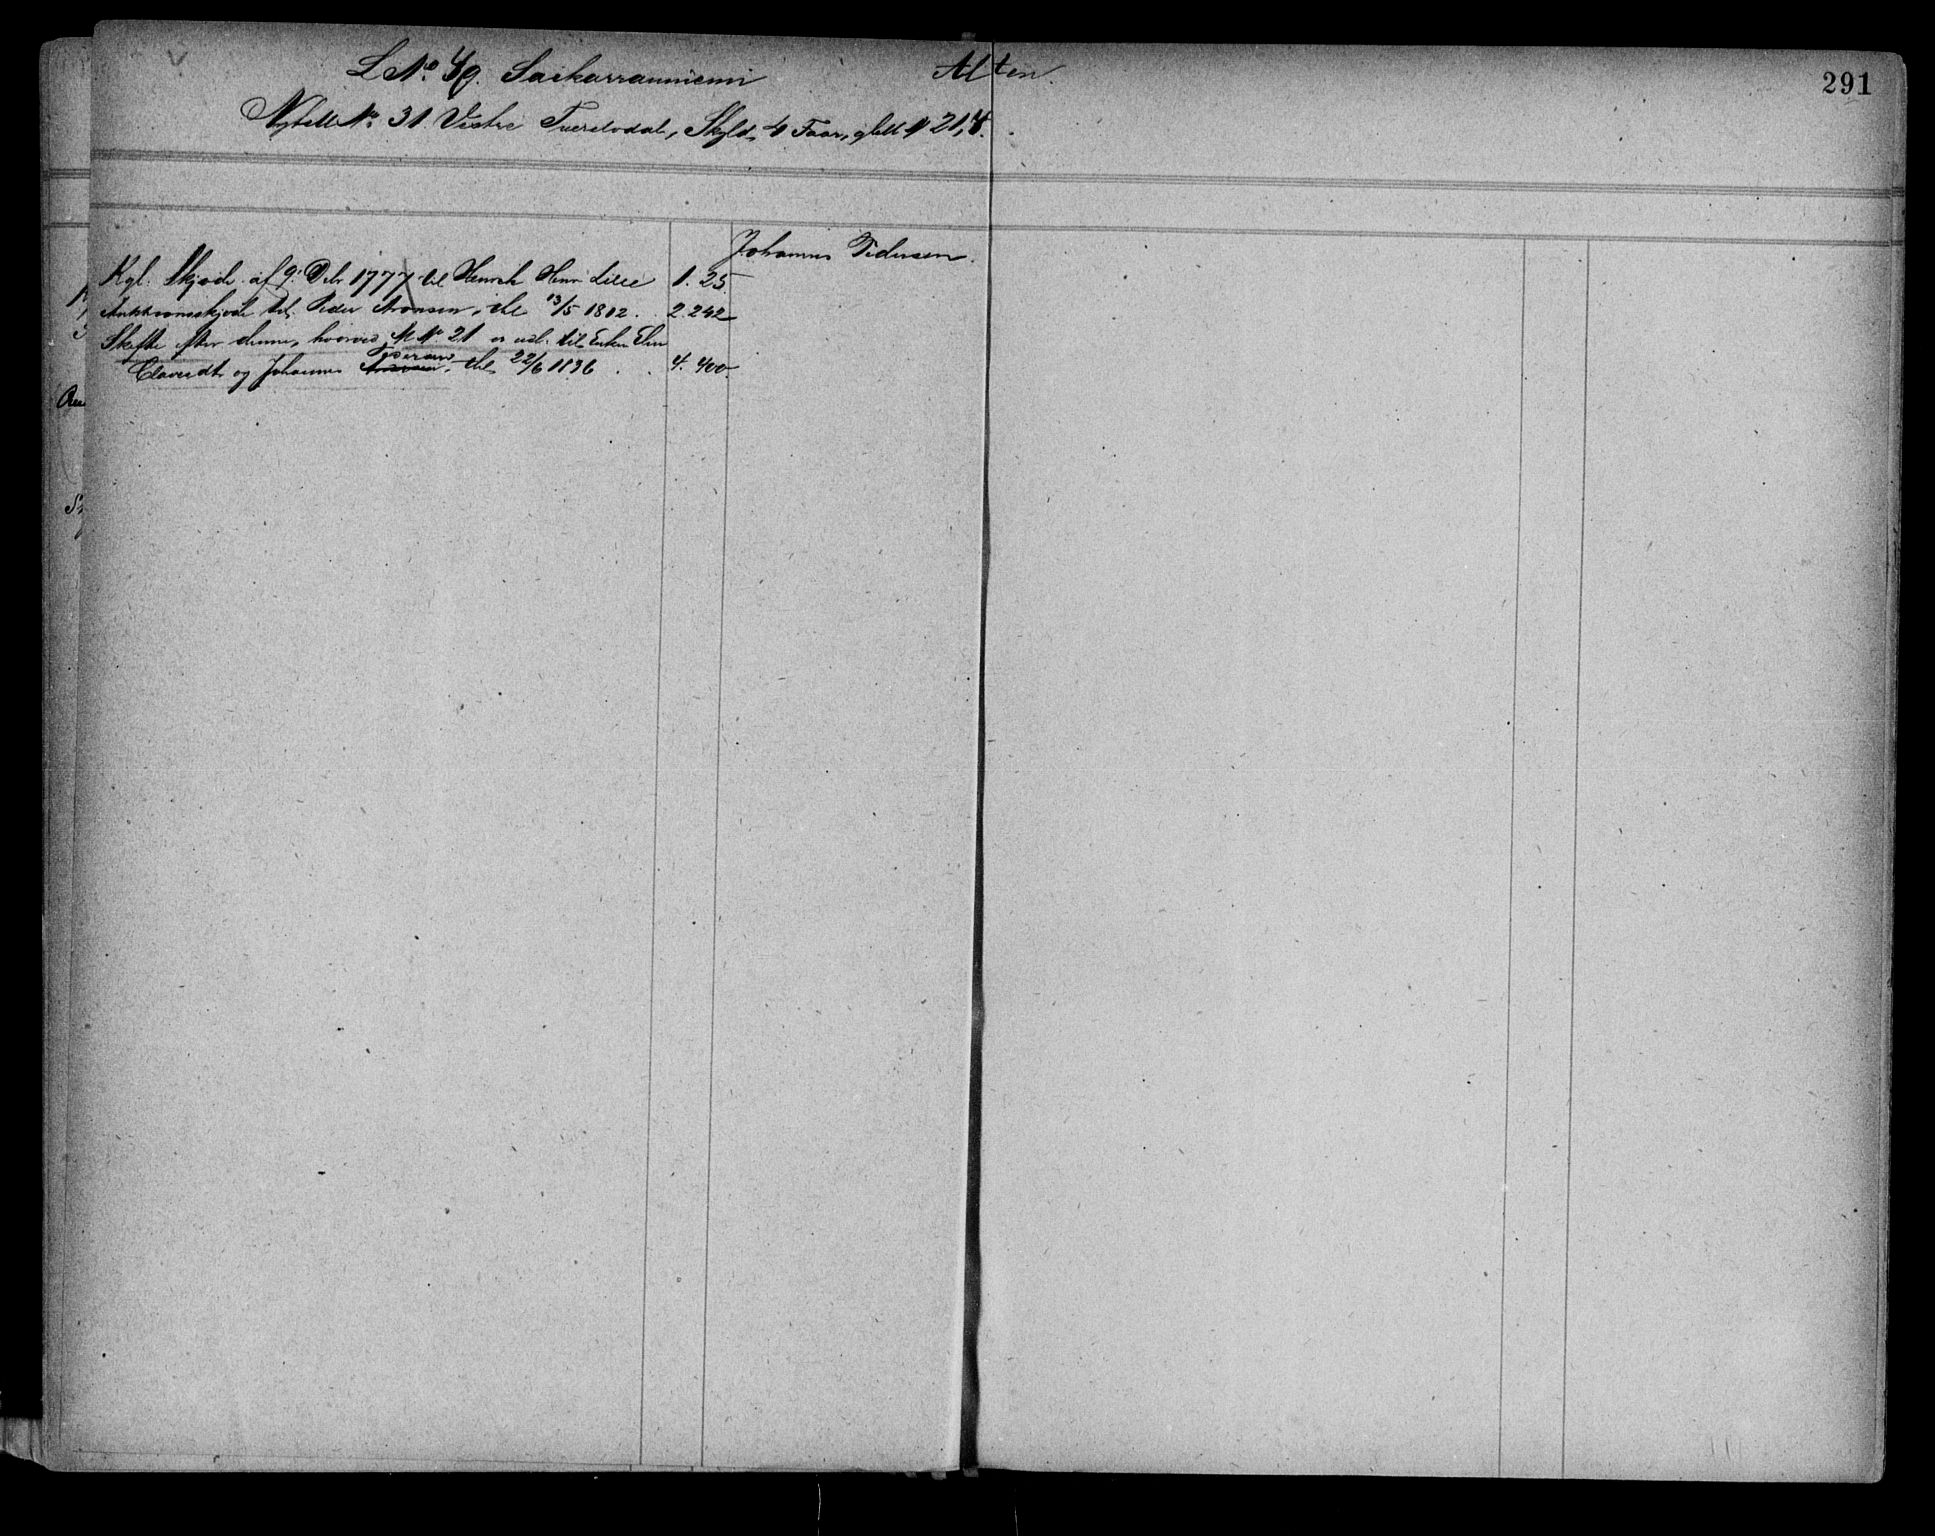 L No. 49. Saikarranniemi Alten.
291
No. 31 Vestre Tverelvdal, Skyld 4 Faar, 21,4.
Johannes Pedersen.
Kgl. Skjøde af 9. Debr 1777 til Henrich Henr Lille 1. 25
Auktionsskjøde til Peder Aronsen, thl 13/5 1802. 2. 242
Skifte efter denne, hvorved M No. 21 er udl. til Enken Elen
Pedersen
Clavesdtr og Johannes thl 22/6 1836 . . 4. 400.